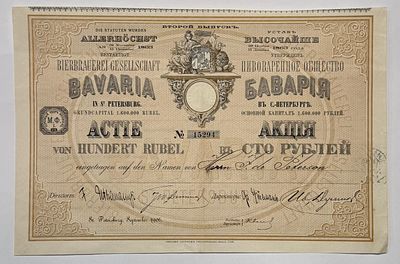 ВТОРОЙ ВЫПУСКЪ.
DIE STATUTEN WURDEN
ALLERHÖCHST
1863
УСТАВЪ
ВЫСОЧАЙШЕ
1863 ГОДА
BIERBRAUEREI GESELLSCHAFT
BAVARIA
IN St PETERSBURG.
GRUNDCAPITAL 1.600.000 RUBEL
ПИВОВАРЕННОЕ ОБЩЕСТВО
БАВАРІЯ
ВЪ С-ПЕТЕРБУРГѢ.
ОСНОВНОЙ КАПИТАЛЪ 1.600.000 РУБЛЕЙ.
М.Ф.
ACTIE № 15294 АКЦІЯ
VON HUNDERT RUBEL ВЪ СТО РУБЛЕЙ
eingetragen auf den Namen von Herrn
Directoren:
Директоры:
St. Petersburg, September